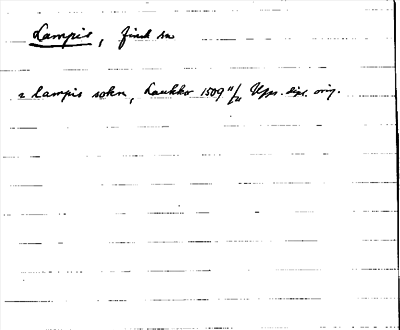 Lampis, finl sn
i lampis sokn, Laukko 1509 11/11 Ups. dipl. orig.